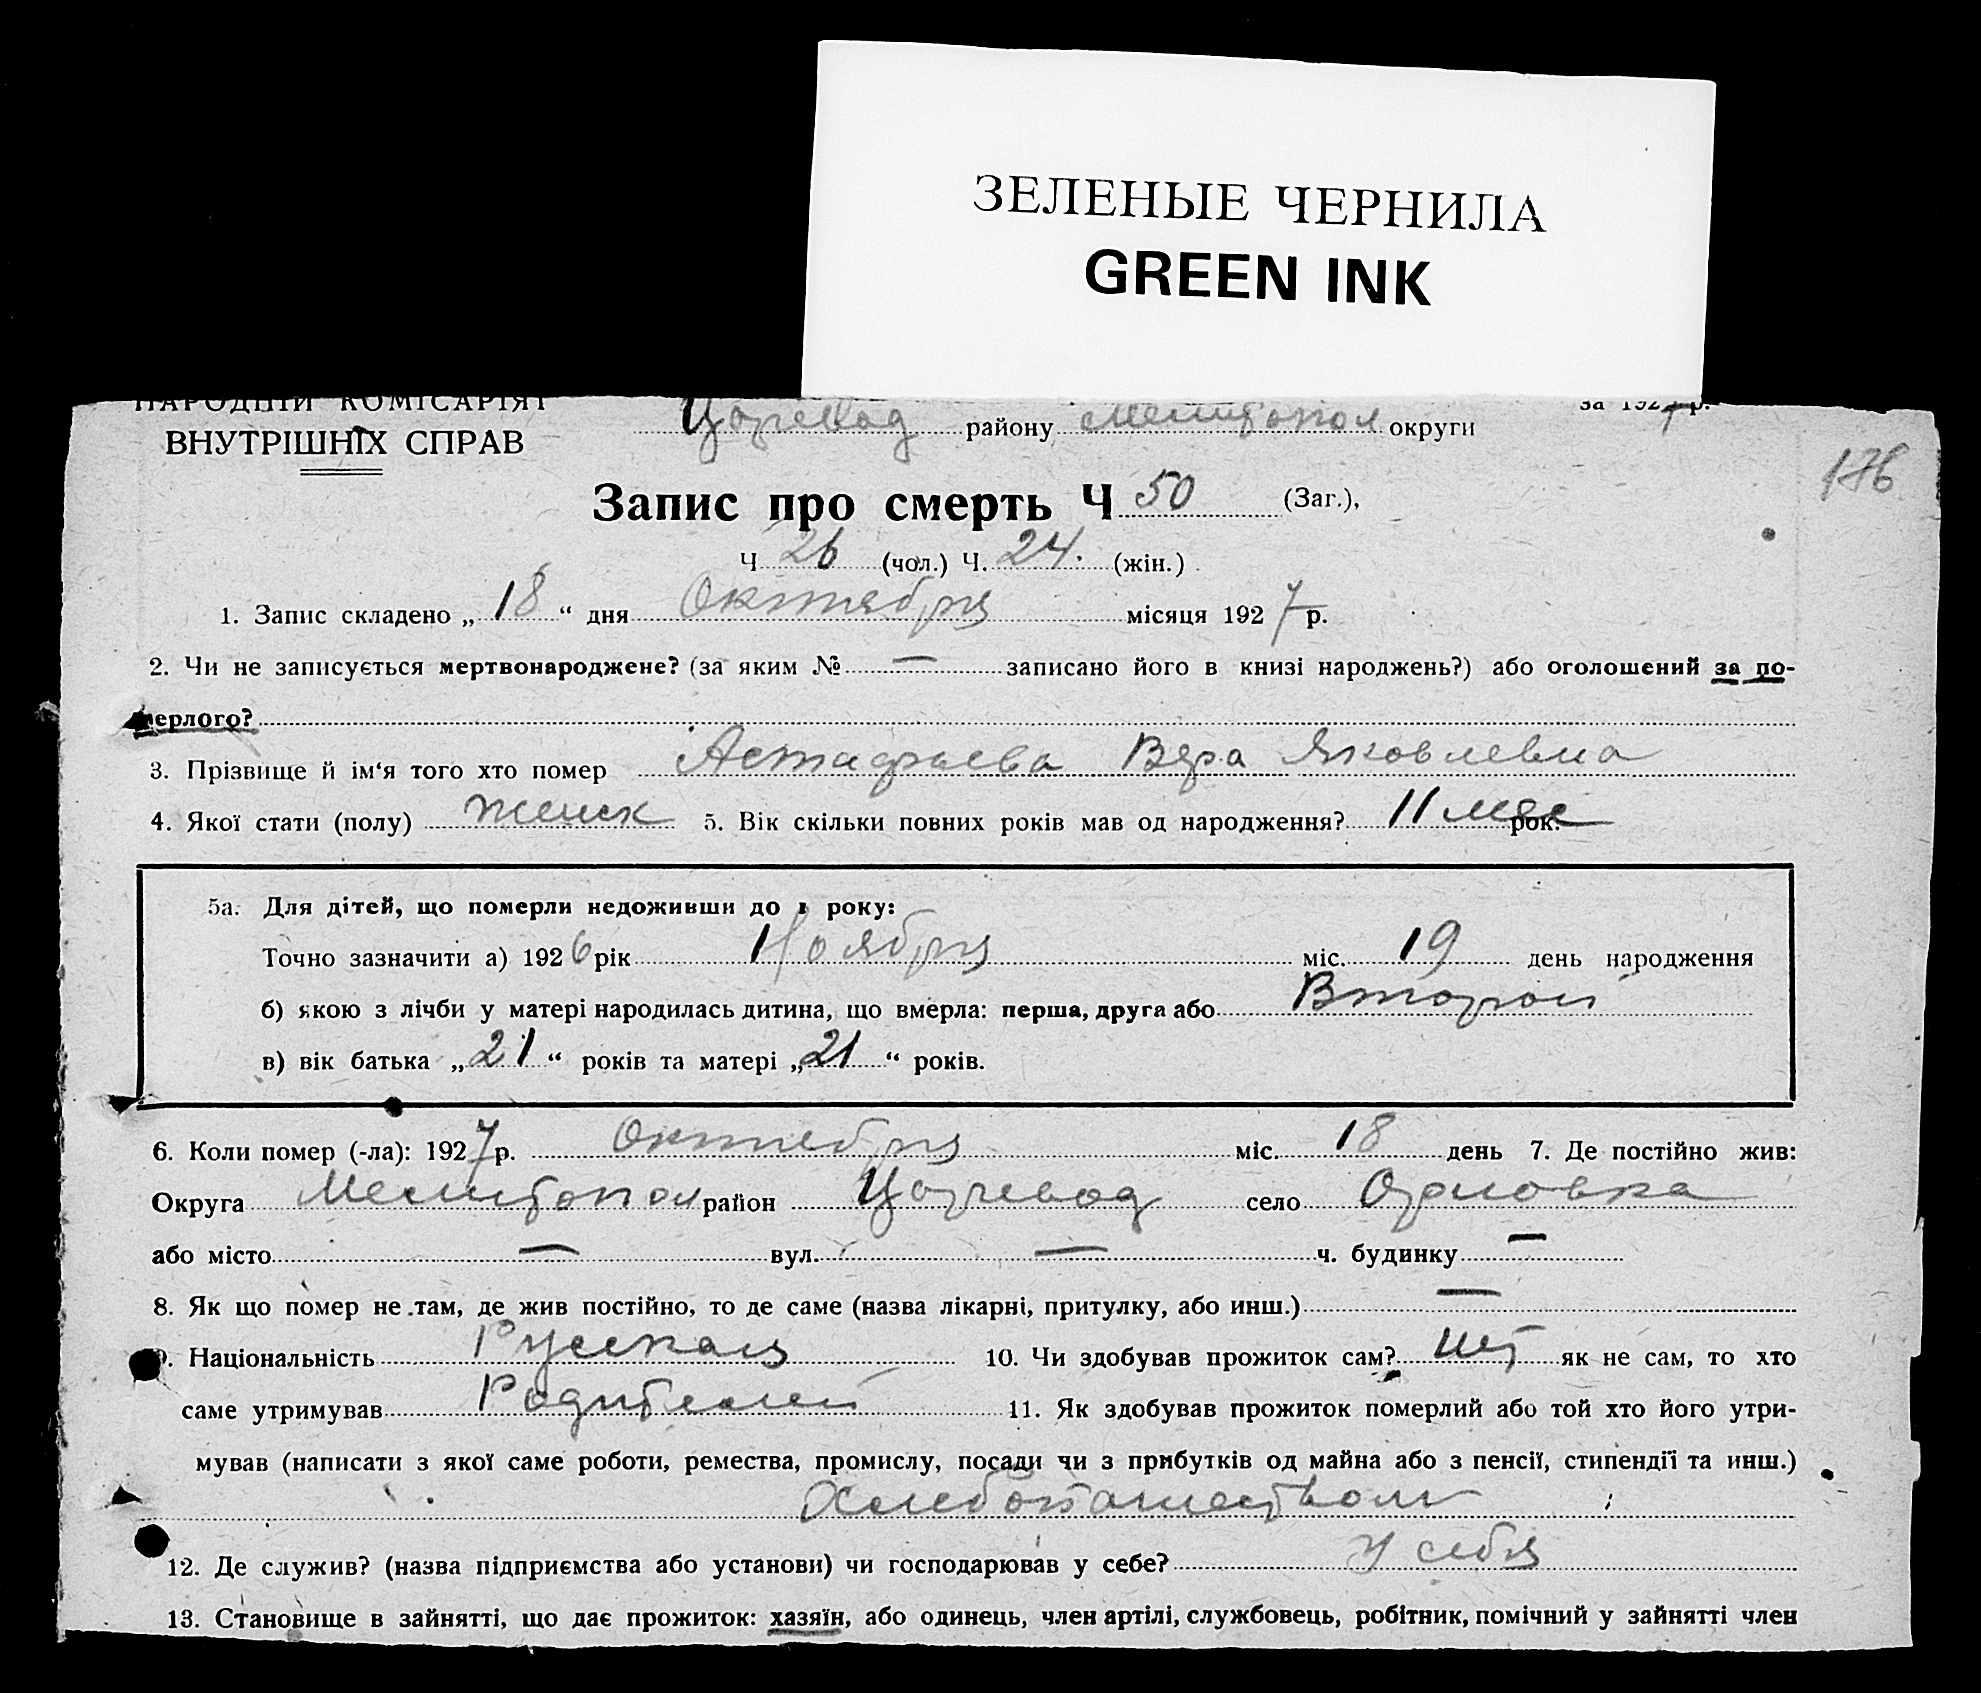 ЗЕЛЕНЫЕ ЧЕРНИЛА
GREEN INK
НАРОДНІЙ КОМІСАРІЯТ
ВНУТРІШНІХ СПРАВ
Царевод району Мелитопол округи
за 1927 р.
176
Запис про смерть Ч 50 (Заг.),
Ч 26 (чол.) Ч. 24. (жін.)
1. Запис складено „ 18 “ дня Октября місяця 1927 р.
2. Чи не записується мертвонароджене? (за яким № — записано його в книзі народжень?) або оголошений за по-
мерлого?
3. Прізвище й ім‘я того хто помер Астафьева Вера Яковлевна
4. Якої стати (полу) женск 5. Вік скільки повних років мав од народження? 11 мес рок.
5а. Для дітей, що померли недоживши до 1 року:
Точно зазначити а) 1926 рік Ноября міс. 19 день народження
б) якою з лічби у матері народилась дитина, що вмерла: перша, друга або Второй
в) вік батька „ 21 “ років та матері „ 21 “ років.
6. Коли помер (-ла): 1927 р. Октября міс. 18 день 7. Де постійно жив:
Округа Мелитопол район Царевод село Орловка
або місто — вул. — ч. будинку —
8. Як що помер не там, де жив постійно, то де саме (назва лікарні, притулку, або инш.) —
9. Національність Русская 10. Чи здобував прожиток сам? нет як не сам, то хто
саме утримував Родителей 11. Як здобував прожиток померлий або той хто його утри-
мував (написати з якої саме роботи, ремества, промислу, посади чи з прибутків од майна або з пенсії, стипендії та инш.)
Хлебопашеством
12. Де служив? (назва підприємства або установи) чи господарював у себе? у себя
13. Становище в зайнятті, що дає прожиток: хазяїн, або одинець, член артілі, службовець, робітник, помічний у зайнятті член